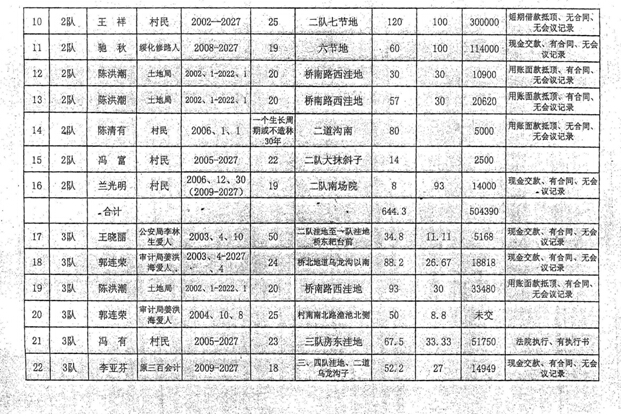 10 2队 王 祥 村民 2002--2027 25 二队七节地 120 100 300000 短期借款抵顶、无合同、无会议记录
11 2队 驰 秋 绥化修路人 2008-2027 19 六节地 60 100 114000 现金交款、有合同、无会议记录
12 2队 陈洪潮 土地局 2002、1-2022、1 20 桥南路西洼地 30 30 10900 用账面款抵顶、有合同、无会议记录
13 2队 陈洪潮 土地局 2002、1-2022、1 20 桥南路西洼地 57 30 20620 用账面款抵顶、有合同、无会议记录
14 2队 陈清有 村民 2006、1、1 一个生长周期或不造林30年 二道沟南 80 5000 用账面款抵顶、无合同、无会议记录
15 2队 冯 富 村民 2005-2027 22 二队大抹斜子 14 2500
16 2队 兰光明 村民 2006、12、30(2009-2027) 19 二队南场院 8 93 14000 现金交款、有合同、无会议记录
合计 644.3 504390
17 3队 王晓丽 公安局李林生爱人 2003、4、10 50 二队洼地至一队洼地桥东耙台前 34.8 11.11 5168 现金交款、有合同、无会议记录
18 3队 郭连荣 审计局姜洪海爱人 2003、4-2027、4 24 桥北地道乌龙沟以南 88.2 26.67 18818 现金交款、有合同、无会议记录
19 3队 陈洪潮 土地局 2002、1-2022、1 20 桥南路西洼地 93 30 33480 用账面款抵顶、有合同、无会议记录
20 3队 郭连荣 审计局姜洪海爱人 2004、10、8 25 村南南北路渔池北侧 50 8.8 未交
21 3队 冯 有 村民 2005-2027 23 三队房东洼地 67.5 33.33 51750 法院执行、有执行书
22 3队 李亚芬 原三百会计 2009-2027 18 三、四队洼地、二道乌龙沟子 52.2 27 14949 现金交款、有合同、无会议记录